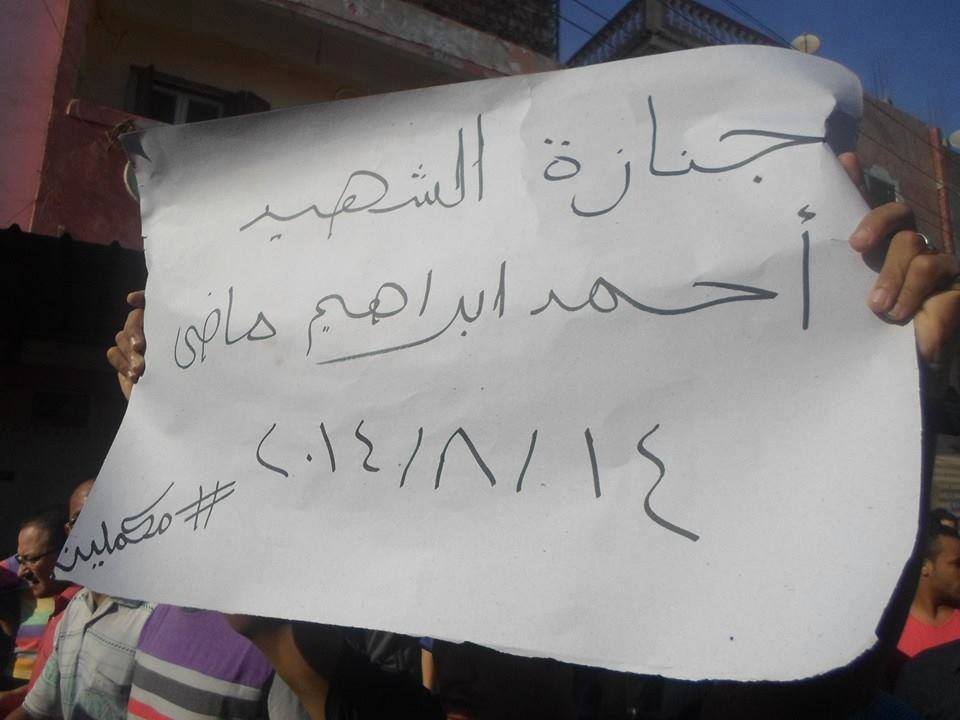 جنازة الشهيد
أحمد ابراهيم ماضى
١٤/٨/٢٠١٤
#مكملين